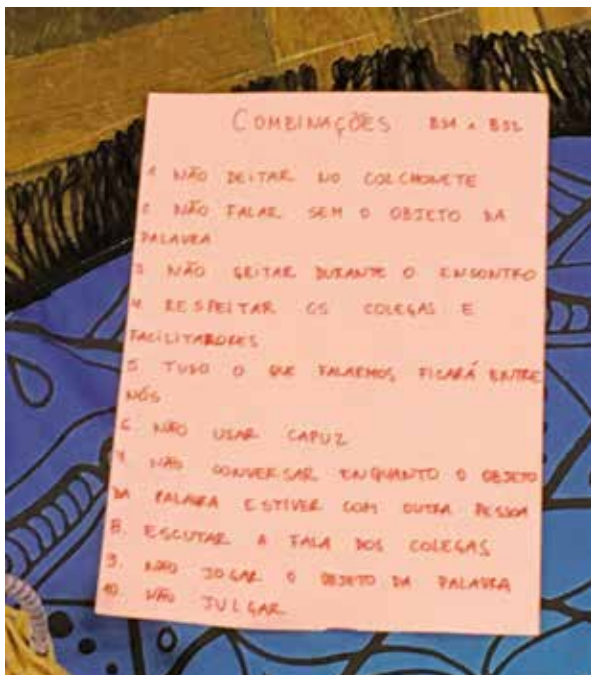 COMBINAÇÕES
1 NÃO DEITAR NO COLCHONETE
2 NÃO FALAR SEM O OBJETO DA
PALAVRA
3 NÃO GRITAR DURANTE O ENCONTRO
4 RESPEITAR OS COLEGAS E
FACILITADORES
5 TUDO O QUE FALARMOS FICARÁ ENTRE
NÓS
6. NÃO USAR CAPUZ
7. NÃO CONVERSAR ENQUANTO O OBJETO
DA PALAVRA ESTIVER COM OUTRA PESSOA
8. ESCUTAR A FALA DOS COLEGAS
9. NÃO JOGAR O OBJETO DA PALAVRA
10. NÃO JULGAR